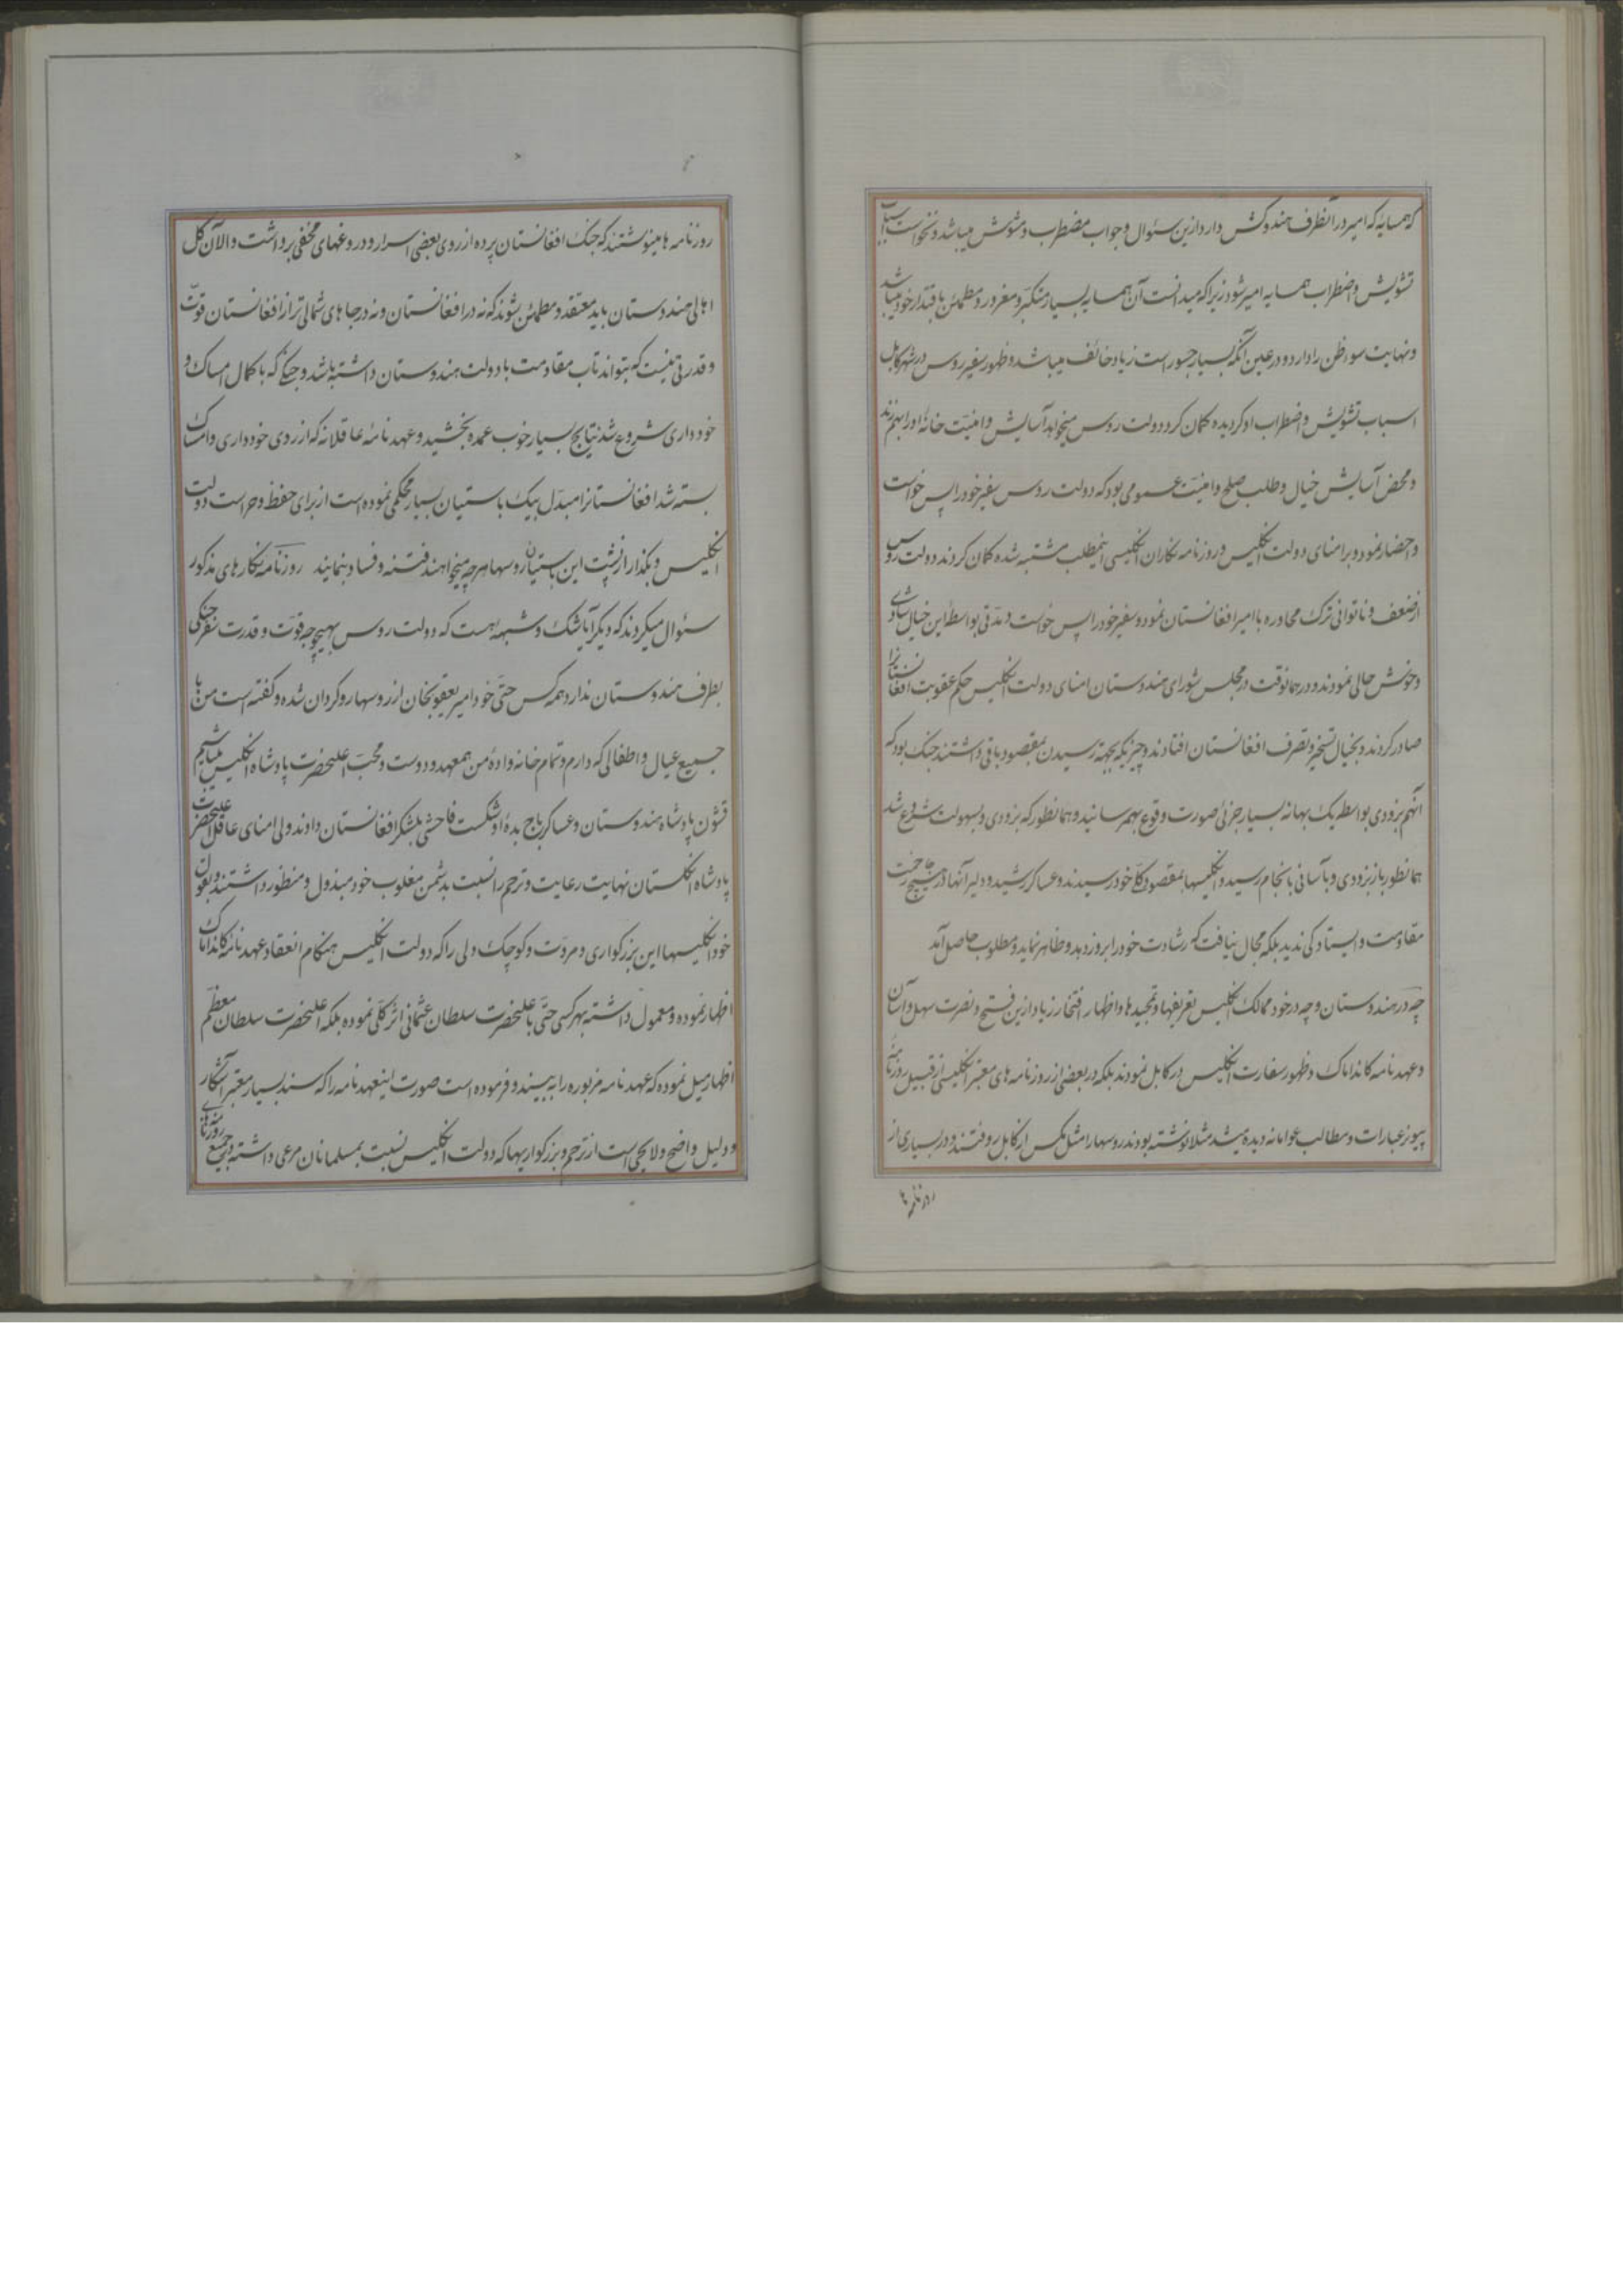 که همسایهٔ که امیر در آنطرف هندوکش دارد ازین سئوال و جواب مضطرب و مشوش میباشد و نخواست اسباب
تشویش و اضطراب همسایه امیر شود زیرا که میدانست آن همسایه بسیار متکبر و مغرور و مطمئن باقتدار خود میباشد
و نهایت سوء ظن را دارد و در عین آنکه بسیار جسور است زیاد خائف میباشد و ظهور سفیر روس در شهر کابل
اسباب تشویش و اضطراب او گردیده گمان کرد دولت روس میخواهد آسایش و امنیت خانهٔ او را بهم زند
و محض آسایش خیال و طلب صلح و امنیت عمومی بود که دولت روس سفیر خود را پس خواست
و احضار نمود و بر امنای دولت انگلیس و روزنامه نگاران انگلیسی اینمطلب مشتبه شده گمان کردند دولت روس
از ضعف و ناتوانی ترک محاوره با امیر افغانستان نمود و سفیر خود را پس خواست و مدتی بواسطهٔ این خیال شادی
و خوش حالی نمودند و در همانوقت در مجلس شورای هندوستان امنای دولت انگلیس حکم عقوبت افغانستانرا
صادر کردند و بخیال تسخیر و تصرف افغانستان افتادند و چیزیکه بجهة رسیدن بمقصود باقی داشتند جنگ بود که
آنهم بزودی بواسطه یک بهانه بسیار جزئی صورت وقوع بهمرسانید و همانطور که بزودی و بسهولت شروع شد
همانطور باز بزودی و بآسانی بانجام رسید و انگلیسها بمقصود کلی خود رسیدند و عساکر رشید و دلیر آنها در هیچ جا سختی
مقاومت و ایستادگی ندید بلکه مجال نیافت که رشادت خود را بروز دهد و ظاهر نماید و مطلوب حاصل آمد
چه در هندوستان و چه در خود ممالک انگلیس تعریفها و تمجیدها و اظهار افتخار زیاد ازین فتح و نصرت سهل و آسان
و عهدنامه کانداماک و ظهور سفارت انگلیس در کابل نمودند بلکه در بعضی از روزنامه های معتبر انگلیسی از قبیل روزنامهٔ
پیونر عبارات و مطالب عوامانه دیده میشد مثلا نوشته بودند روسها را مثل مگس از کابل روفتند و در بسیاری از
روزنامه ها
روزنامه ها مینوشتند که جنگ افغانستان پرده از روی بعضی اسرار و دروغهای مخفی برداشت و الآن کل
اهالی هندوستان باید معتقد و مطمئن بشوند که نه در افغانستان و نه در جاهای شمالی تر از افغانستان قوت
و قدرتی نیست که بتواند تاب مقاومت با دولت هندوستان داشته باشد و جنگی که با کمال امساک و
خودداری شروع شد نتایج بسیار خوب عمده بخشید و عهدنامهٔ عاقلانه که از روی خودداری و امساک
بسته شد افغانستانرا مبدل بیک باستیان بسیار محکمی نموده است از برای حفظ و حراست دولت
انگلیس و بگذار از پشت این باستیان روسها هر چه میخواهند فتنه و فساد بنمایند روزنامه نگارهای مذکور
سئوال میکردند که دیگر آیا شک و شبهه هست که دولت روس بهیچوجه قوت و قدرت سفر جنگی
بطرف هندوستان ندارد همه کس حتی خود امیر یعقوبخان از روسها روگردان شده و گفته است من با
جمیع عیال و اطفالی که دارم و تمام خانه وادهٔ من همعهد و دوست و محب اعلیحضرت پادشاه انگلیس میباشیم
قشون پادشاه هندوستان و عساکر باج بدهٔ او شکست فاحشی بلشکر افغانستان دادند ولی امنای عاقل اعلیحضرت
پادشاه انگلستان نهایت رعایت و ترحم را نسبت بدشمن مغلوب خود مبذول و منظور داشتند و بقول
خود انگلیسها این بزرگواری و مروت و کوچک دلی را که دولت انگلیس هنگام انعقاد عهدنامه کانداماک
اظهار نموده و معمول داشته بهر کسی حتی باعلیحضرت سلطان عثمانی اثر کلی نموده بلکه اعلیحضرت سلطان معظم
اظهار میل نموده که عهدنامه مزبوره را به بیند و فرموده است صورت اینعهدنامه را که سند بسیار معتبر آشکار
و دلیل واضح و لایحی است از ترحم و بزرگواریها که دولت انگلیس نسبت بمسلمانان مرعی داشته و جمیع روزنامهای